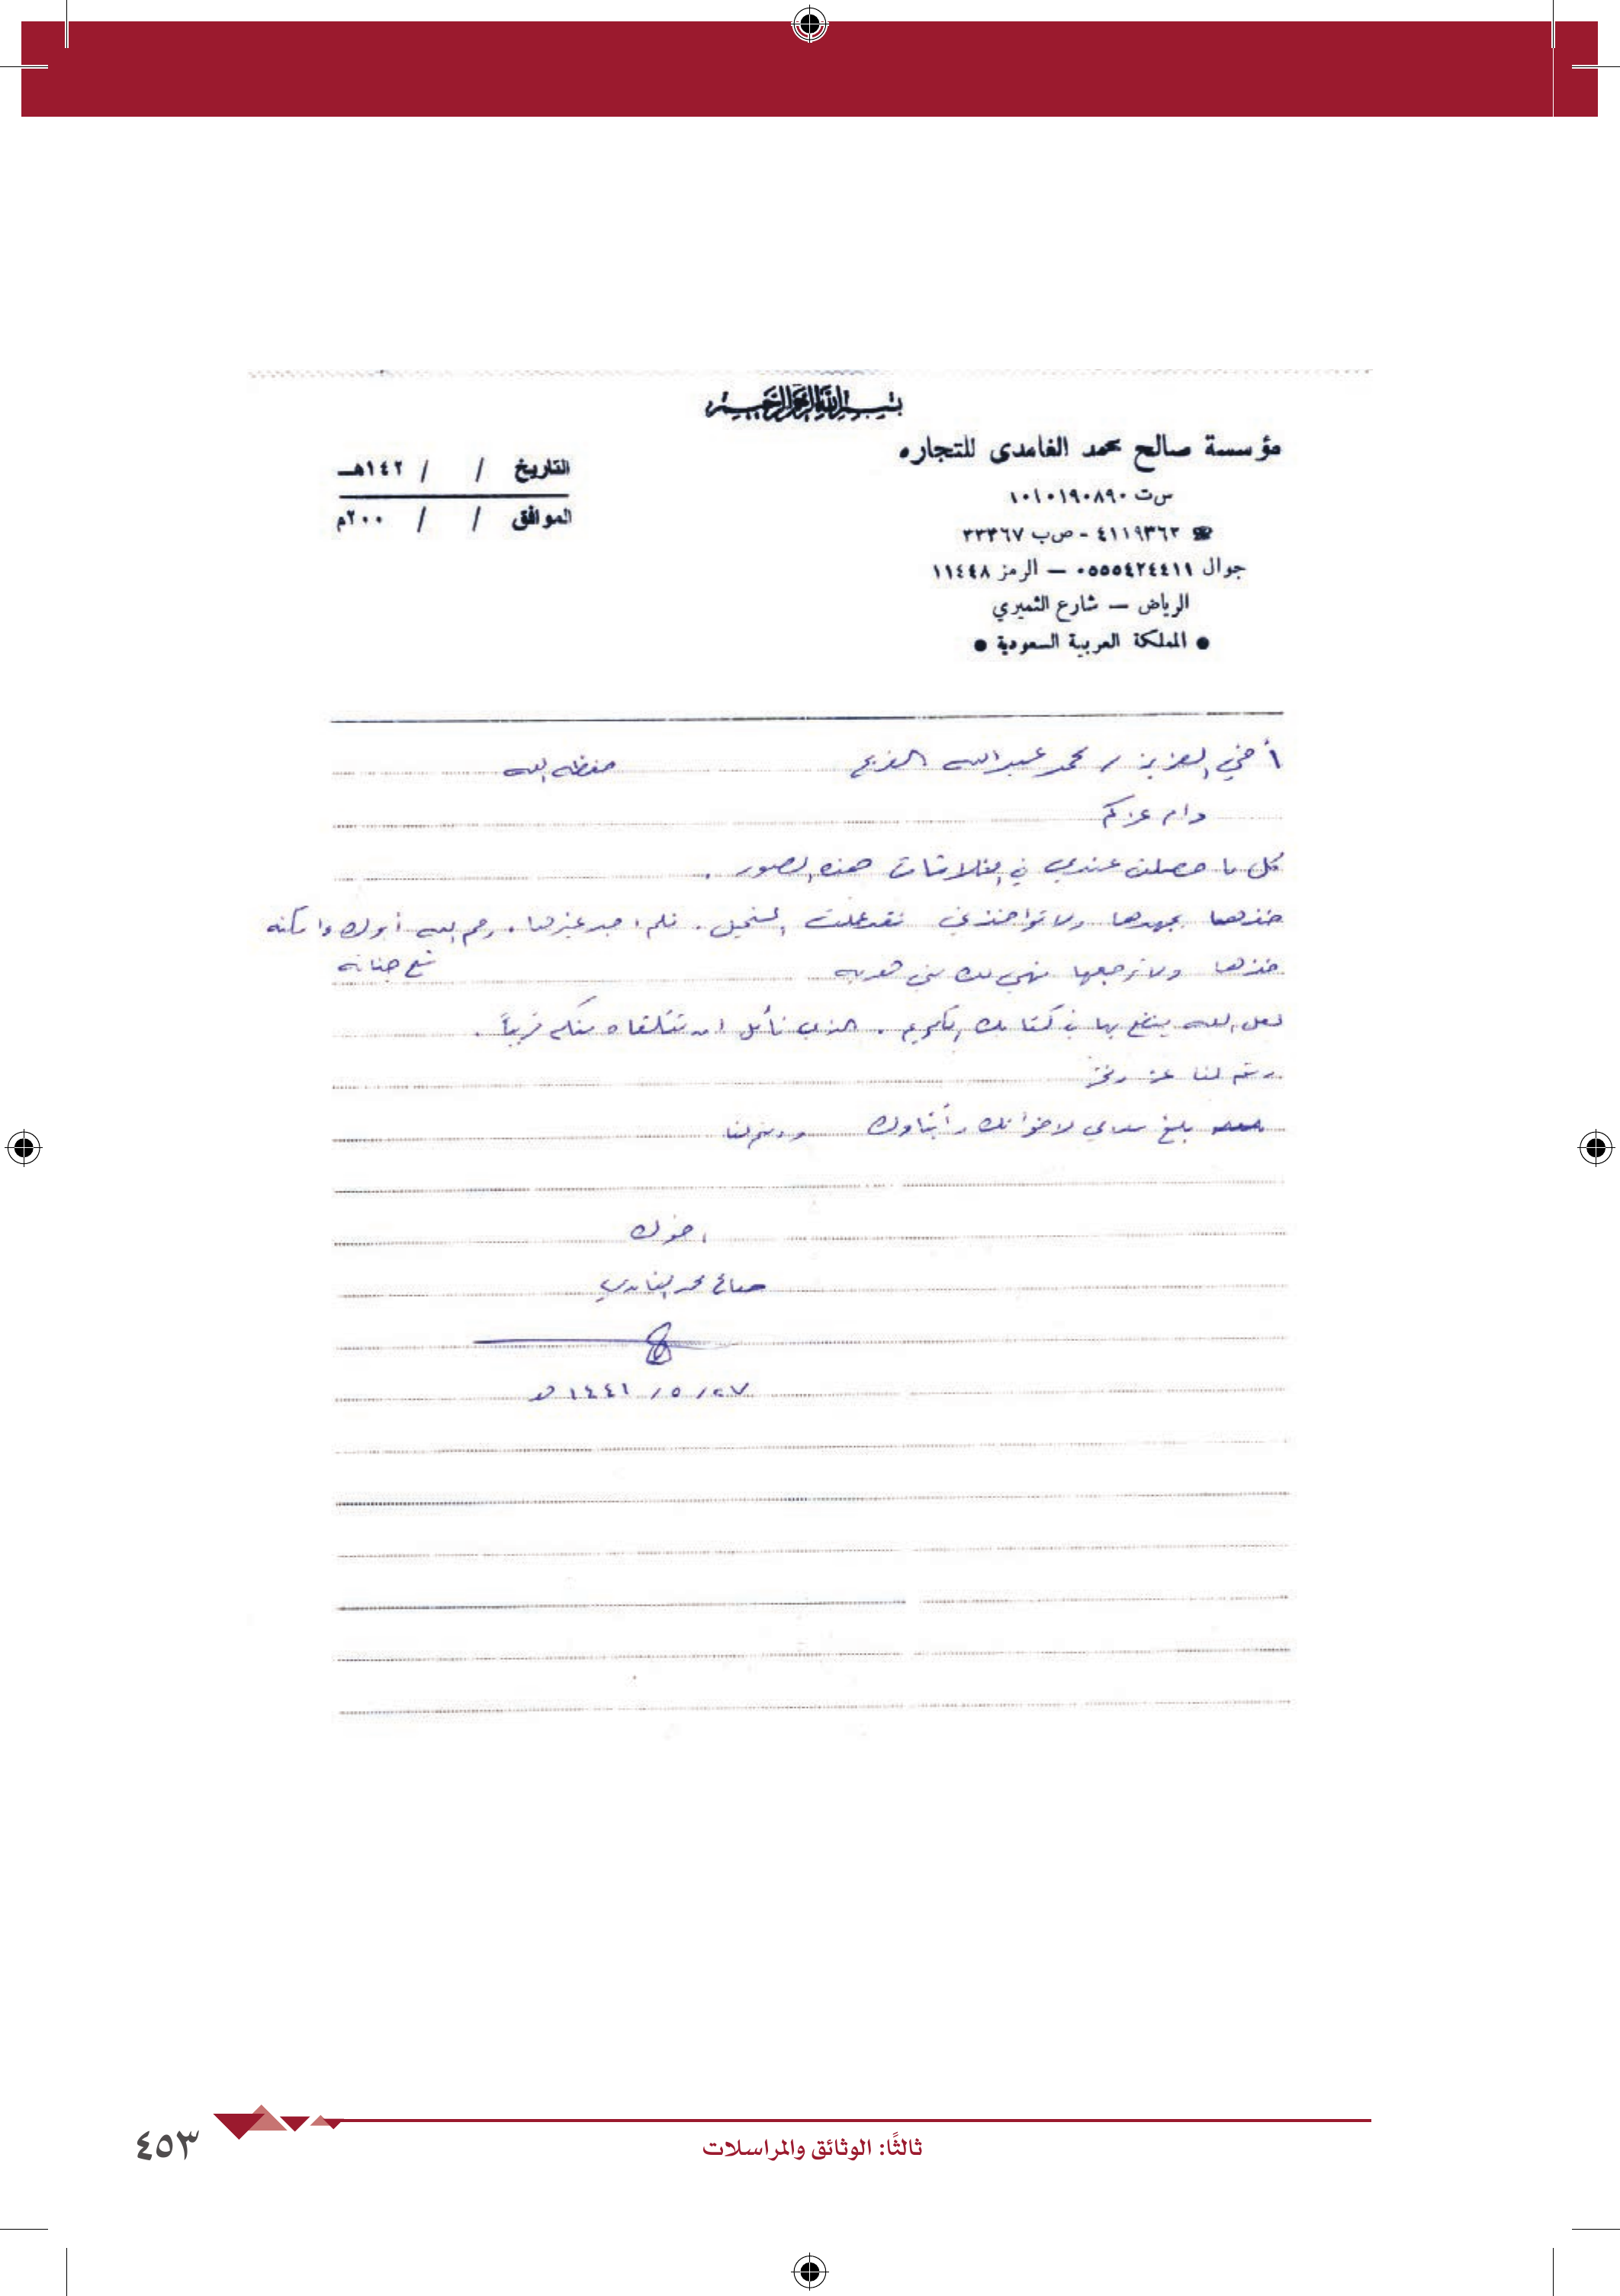 بسم الله الرحمن الرحيم
مؤسسة صالح محمد الغامدى للتجاره
س ت ١٠١٠١٩٠٨٩٠
☎ ٤١١٩٣٦٢ - ص ب ٢٣٣٦٧
جوال ٠٥٥٥٤٢٤٤١١ – الرمز ١١٤٤٨
الرياض – شارع الثميري
● المملكة العربية السعودية ●
التاريخ / / ١٤٢هـ
الموافق / / ٢٠٠م
أخي العزيز / محمد عبدالله الفريح حفظه الله
دام عزكم
كل ما حصلت عندي في هذه الصور .
خذها بجهدها ولا تؤاخذني فقد عملت المستحيل . فلم اجد غيرها . رحم الله أبوك واسكنه
فسيح جنانه
خذها ولا ترجعها فهي لك مني هديه
لعل الله ينفع بها في كتابك الكريم . الذي نأمل ان نتلقاه منكم قريباً .
دمتم لنا عز وفخر
بلغ سلامي لاخوانك وأبناءك ودمتم لنا
اخوك
صالح محمد الغامدي
٢٧ / ٥ / ١٤٤١ هـ
ثالثًا: الوثائق والمراسلات
٤٥٣